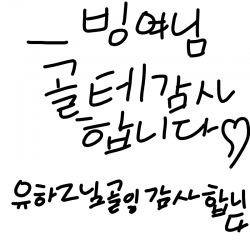 _빙여님
골테감사
합니다♡
유하그님골잉 감사합니
다